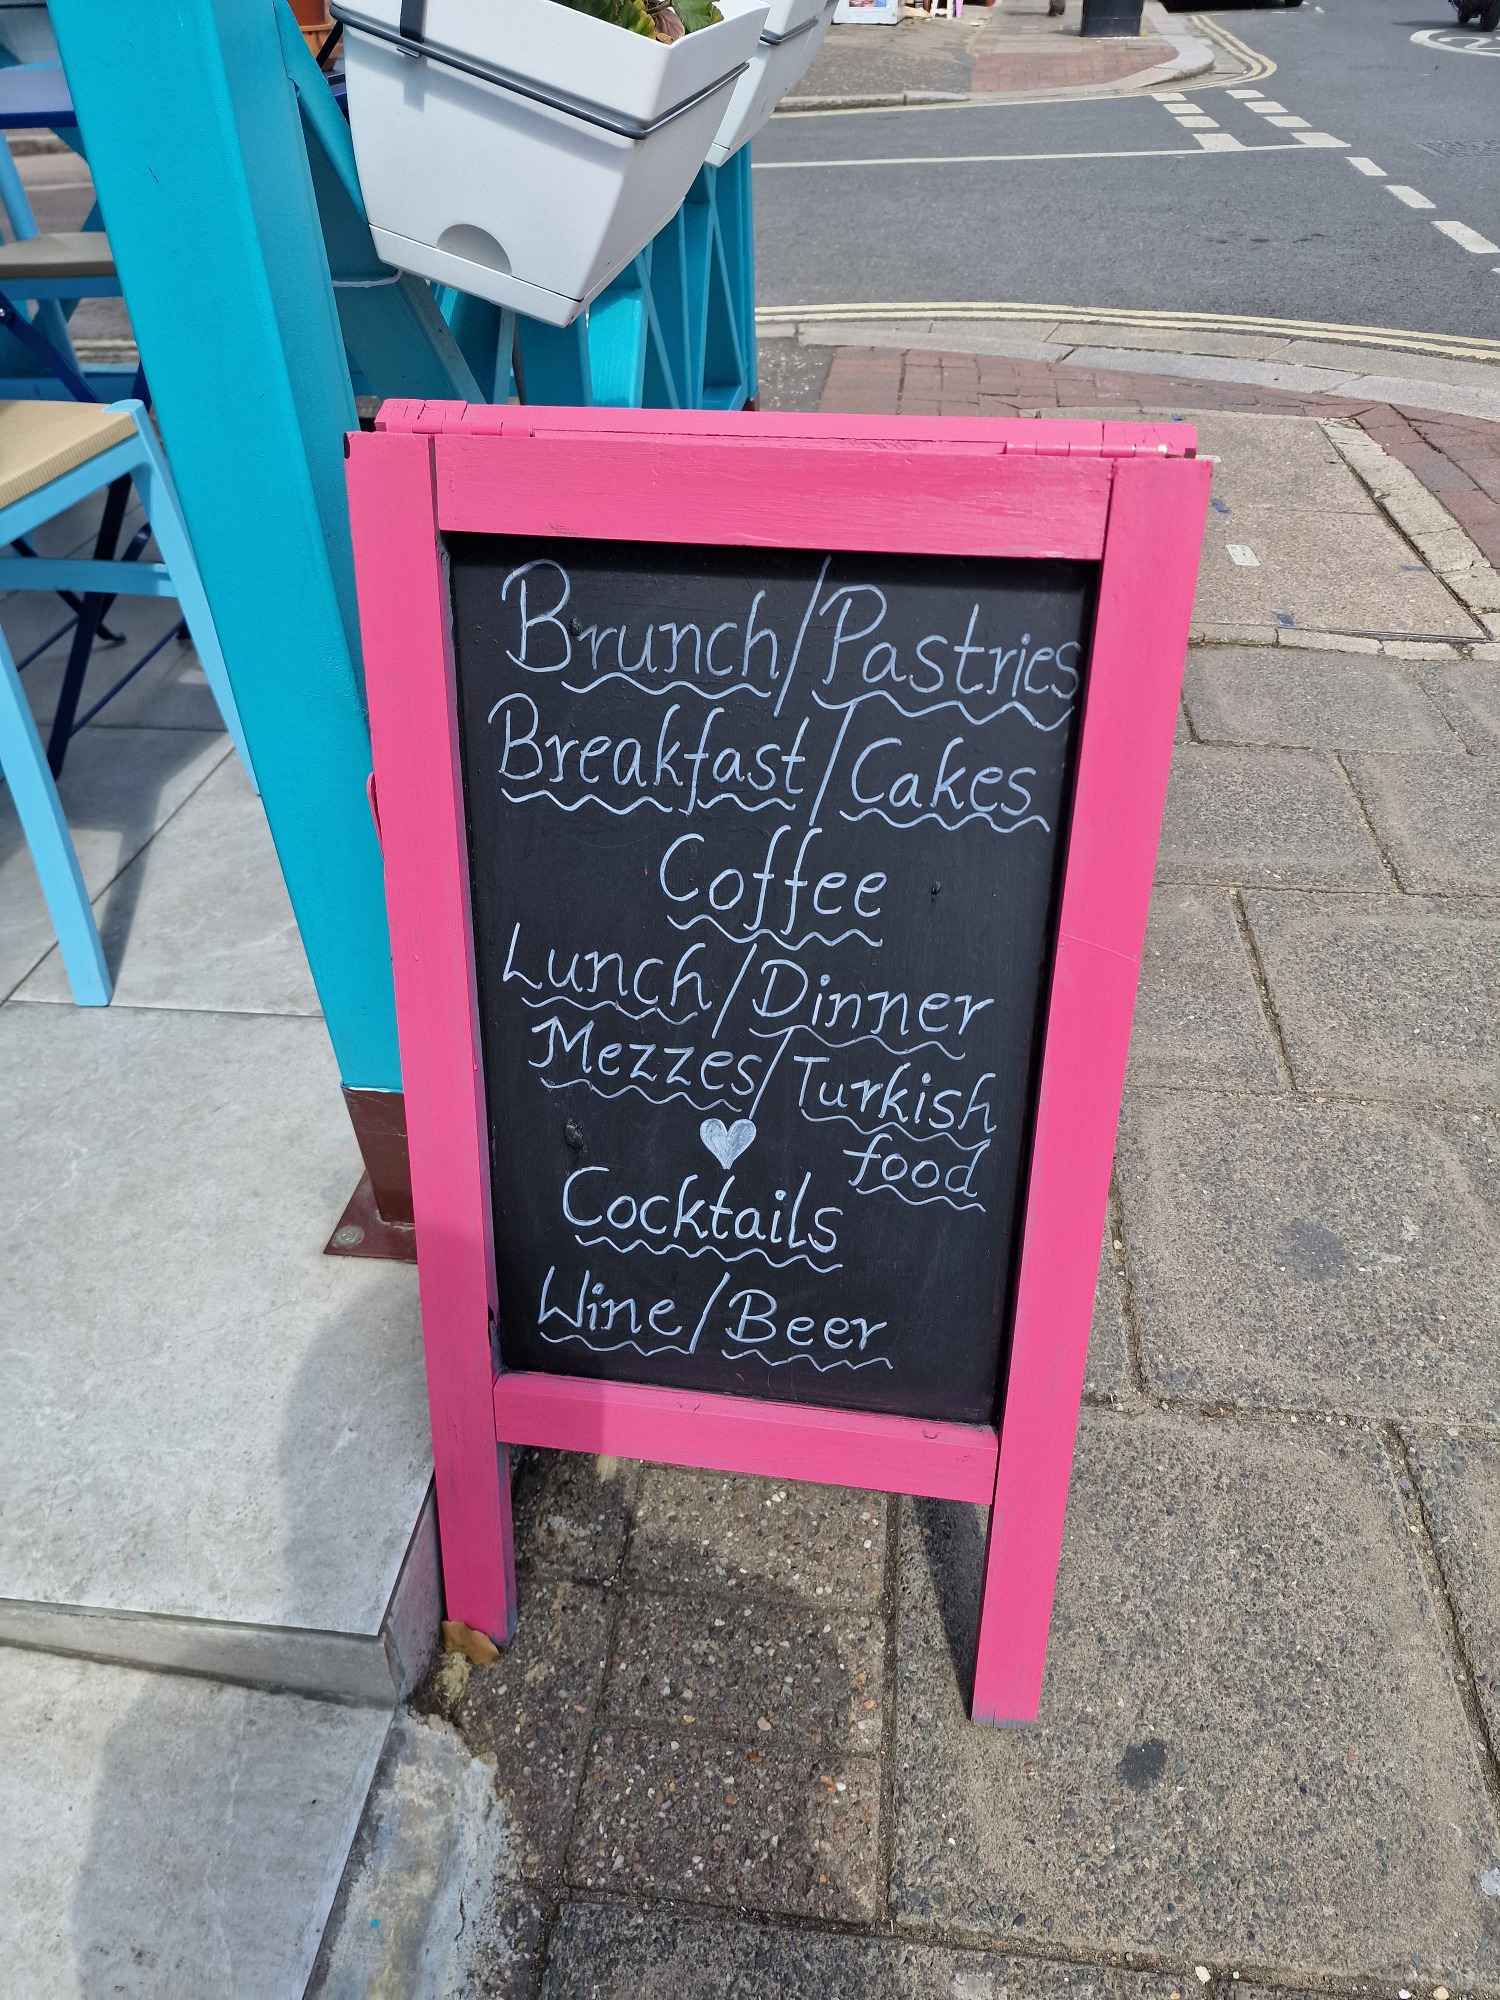 Brunch/Pastries
Breakfast/Cakes
Coffee
Lunch/Dinner
Mezzes/Turkish
food
Cocktails
Wine/Beer